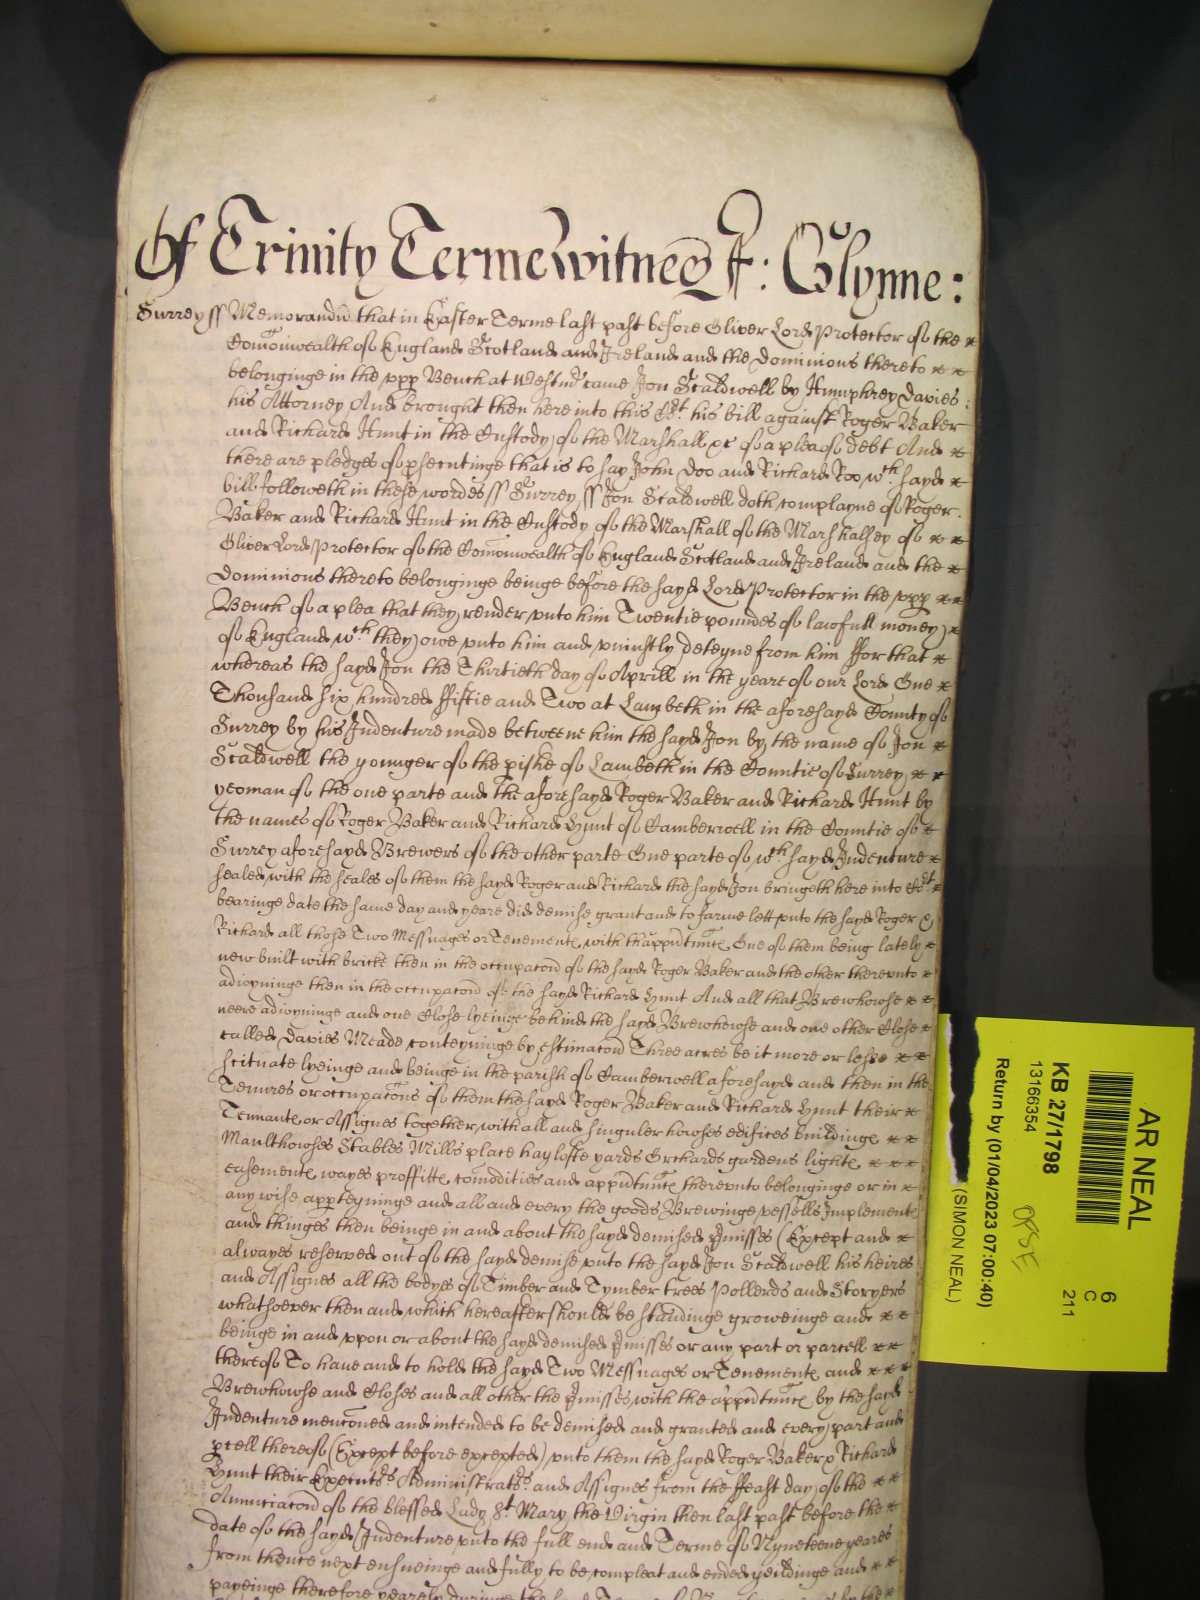 Of Trinity Terme Witnes J: Glynne:
Surrey ss Memorandū that in Easter Terme last past before Oliver Lord Protector of the
Comonwealth of England Scotland and Ireland and the Dominions thereto
belonginge in the upp Bench at Westmr came Jon Scaldwell by Humphrey Davies
his Attorney And brought then here into this Crt. his bill against Roger Baker
and Richard Hunt in the Custody of the Marshall &c of a plea of debt And
there are pledges of psecutinge that is to say John Doo and Richard Roo wch. sayd
bill followeth in these wordes ss Surrey ss Jon Scaldwell doth complayne of Roger
Baker and Richard Hunt in the Custody of the Marshall of the Marshalsey of
Oliver Lord Protector of the Comonwealth of England Scotland and Ireland and the
Dominions thereto belonginge beinge before the sayd Lord Protector in the upp
Bench of a plea that they render unto him Twentie poundes of lawfull money
of England wch. they owe unto him and uniustly deteyne from him ffor that
whereas the sayd Jon the Thirtieth day of Aprill in the yeare of our Lord One
Thousand six hundred ffiftie and Two at Lambeth in the aforesayd County of
Surrey by his Indenture made betweene him the sayd Jon by the name of Jon
Scaldwell the younger of the pishe of Lambeth in the Countie of Surrey
yeoman of the one parte and the aforesayd Roger Baker and Richard Hunt by
the names of Roger Baker and Richard Hunt of Camberwell in the Countie of
Surrey aforesayd Brewers of the other parte One parte of wch sayd Indenture
sealed with the seales of them the sayd Roger and Richard the sayd Jon bringeth here into Crt
bearinge date the same day and yeare did demise grant and to farme lett unto the sayd Roger &
Richard all those Two Messuages or Tenemente with thapprtnnce One of them being lately
new built with bricke then in the occupacon of the sayd Roger Baker and the other thereunto
adioyninge then in the occupacon of the sayd Richard Hunt And all that Brewhowse
neere adioyninge and one Close lyeinge behind the sayd Brewhowse and one other Close
called Davies Meade conteyninge by estimacon Three acres be it more or lesse
scituate lyeinge and beinge in the parish of Camberwell aforesayd and then in the
Tenures or occupacons of them the sayd Roger Baker and Richard Hunt their
Tennante or Assignes together with all and singuler howses edifices buildinge
Maulthowses Stables Mills place haylofte yards Orchards gardens lighte
easemente wayes proffitte comodities and apprtnnce thereunto belonginge or in
any wise apperteyninge and all and every the goods Brewinge vessells Implemente
and thinges then beinge in and about the sayd demised pmisses (Except and
alwayes reserved out of the sayd demise unto the sayd Jon Scaldwell his heires
and Assignes all the bodyes of Timber and Tymber trees Pollerds and Storyers
whatsoever then and which hereafter should be standinge groweinge and
beinge in and uppon or about the sayd demised pmisses or any part or parcell
thereof To have and to hold the sayd Two Messuages or Tenemente and
Brewhowse and Closes and all other the pmisses with the apprtnnce by the sayd
Indenture menconed and intended to be demised and granted and every part and
pcell thereof (Except before excepted) unto them the sayd Roger Baker & Richard
Hunt their Executrs Administratrs and Assignes from the ffeast day of the
Annunciacon of the blessed Lady St. Mary the Virgin then last past before the
date of the sayd Indenture unto the full end and Terme of Nyneteene yeares
from thence next ensueinge and fully to be compleat and ended yeildinge and
payeinge therefore yearely duringe the
AR NEAL
6
C
211
KB 27/1798
13166354
Return by (01/04/2023 07:00:40)
(SIMON NEAL)